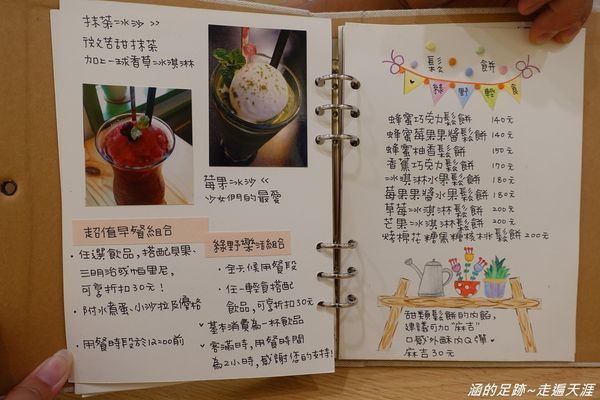 抹茶冰沙 >>
微苦甜抹茶
加上一球香草冰淇淋
莓果冰沙 <<
少女們的最愛
超值早餐組合
• 任選飲品，搭配貝果、
三明治或帕里尼，
可享折扣30元！
• 附水煮蛋、小沙拉及優格
• 用餐時段於12:00前
綠野樂活組合
• 全天候用餐段
• 任一輕食搭配
飲品，可享折扣30元
基本消費為一杯飲品
客滿時，用餐時間
為2小時，感謝您的支持！
鬆餅
綠野輕食
蜂蜜巧克力鬆餅 140元
蜂蜜莓果果醬鬆餅 140元
蜂蜜柚香鬆餅 150元
香蕉巧克力鬆餅 170元
冰淇淋水果鬆餅 180元
莓果果醬水果鬆餅 180元
草莓冰淇淋鬆餅 200元
芒果冰淇淋鬆餅 200元
烤棉花糖焦糖核桃鬆餅 200元
甜類鬆餅的內餡，
建議可加"麻吉"
口感外酥內Q彈
麻吉30元
涵的足跡~走遍天涯